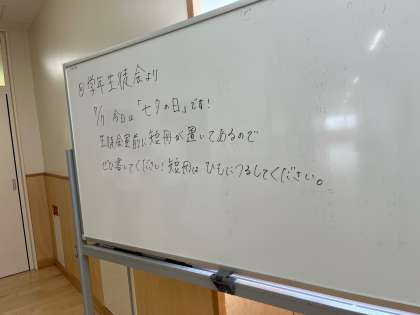 ⑧学年生徒会より
7/7 今日は「七夕の日」です!
生徒会室前に短冊が置いてあるので
ぜひ書いてください!短冊は ひもにつるしてください。